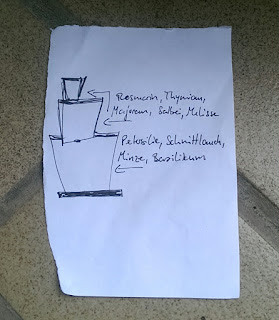 Rosmarin, Thymian,
Majoran, Salbei, Melisse
Petersilie, Schnittlauch,
Minze, Basilikum